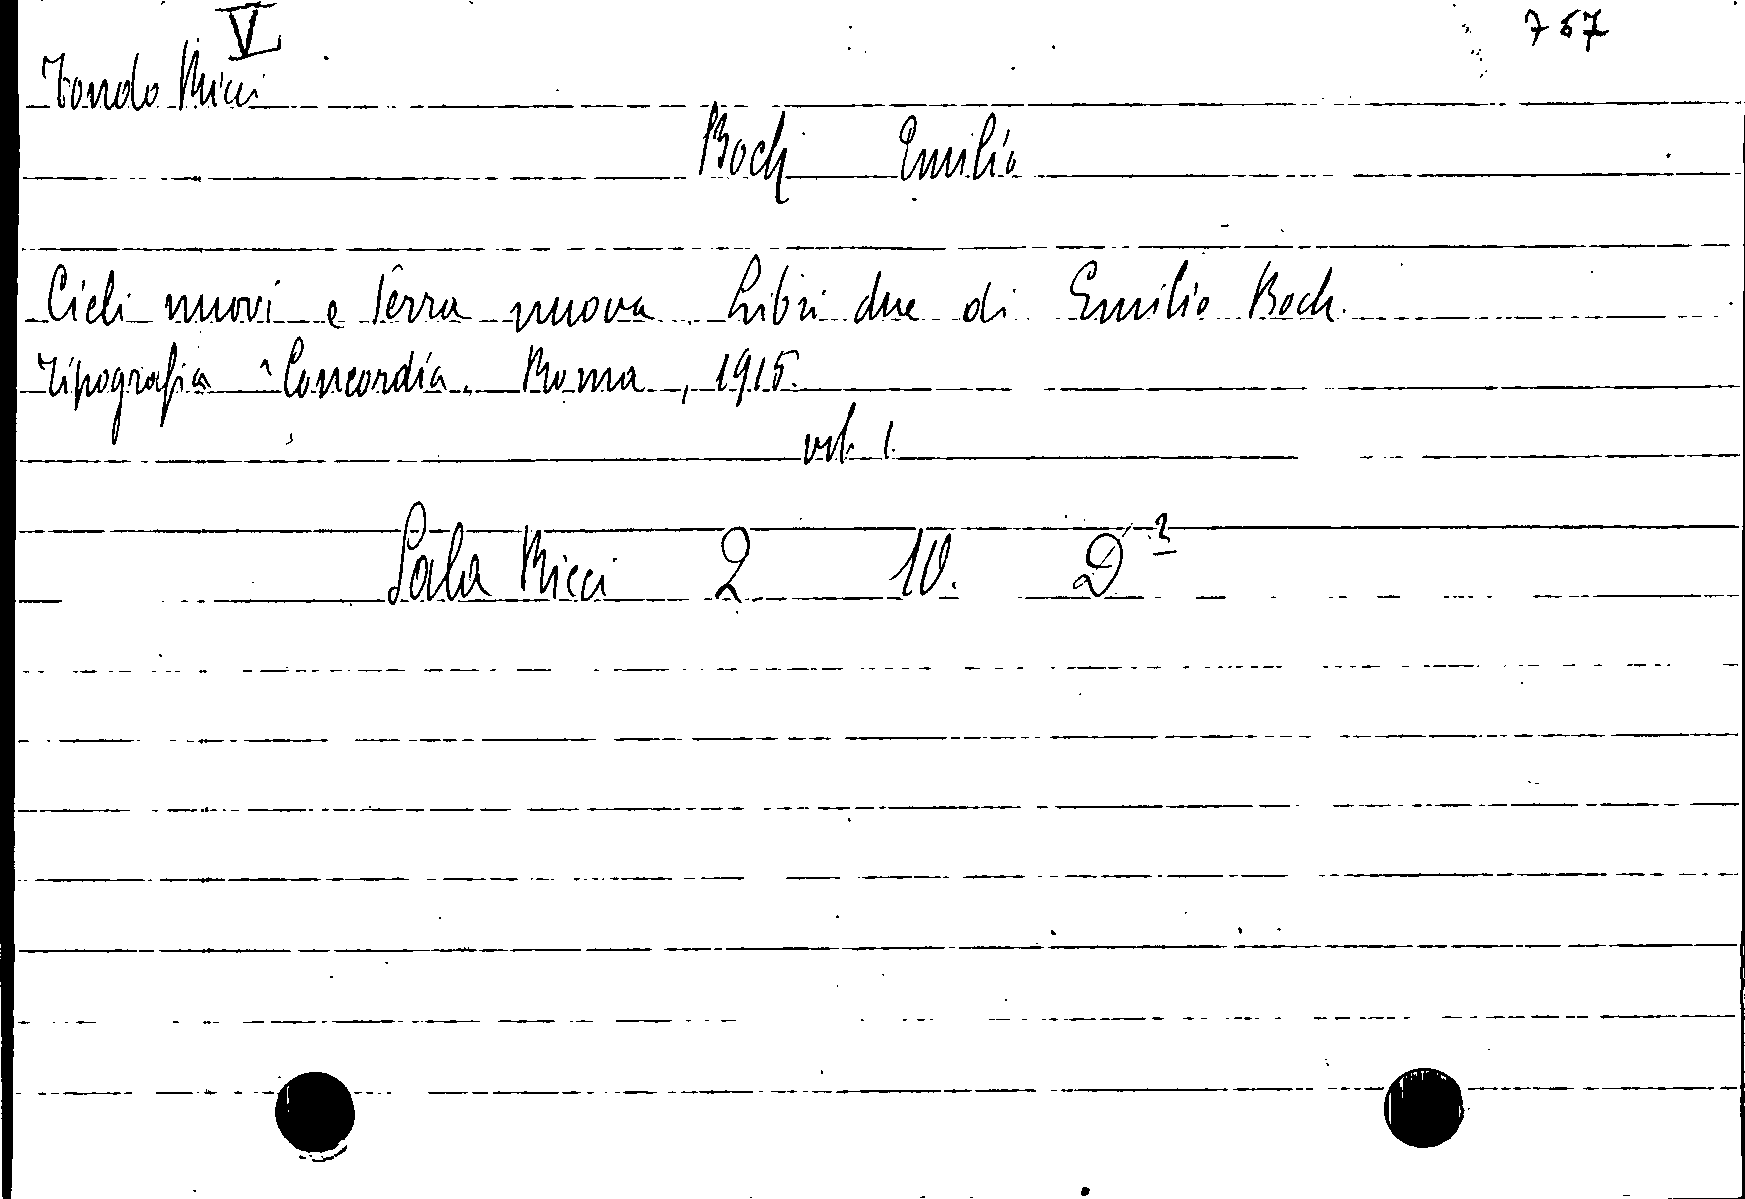 V 767
Fondo Ricci
Bock Emilio
Cieli nuovi e Terra nuova. Libri due di Emilio Bock.
Tipografia "Concordia. Roma, 1915.
vol. 1.
Sala Ricci 2 10. D 2